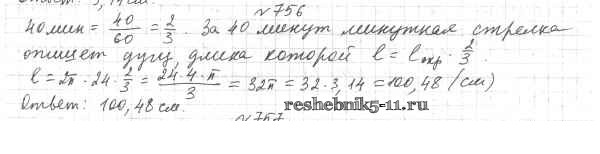 N 756
40 мин = 40/60 = 2/3. За 40 минут минутная стрелка
опишет дугу, длина которой l = lокр · 2/3.
l = 2π · 24 · 2/3 = 24·4·π/3 = 32π = 32·3,14 = 100,48 (см)
Ответ: 100,48 см.
reshebnik5-11.ru
N 757